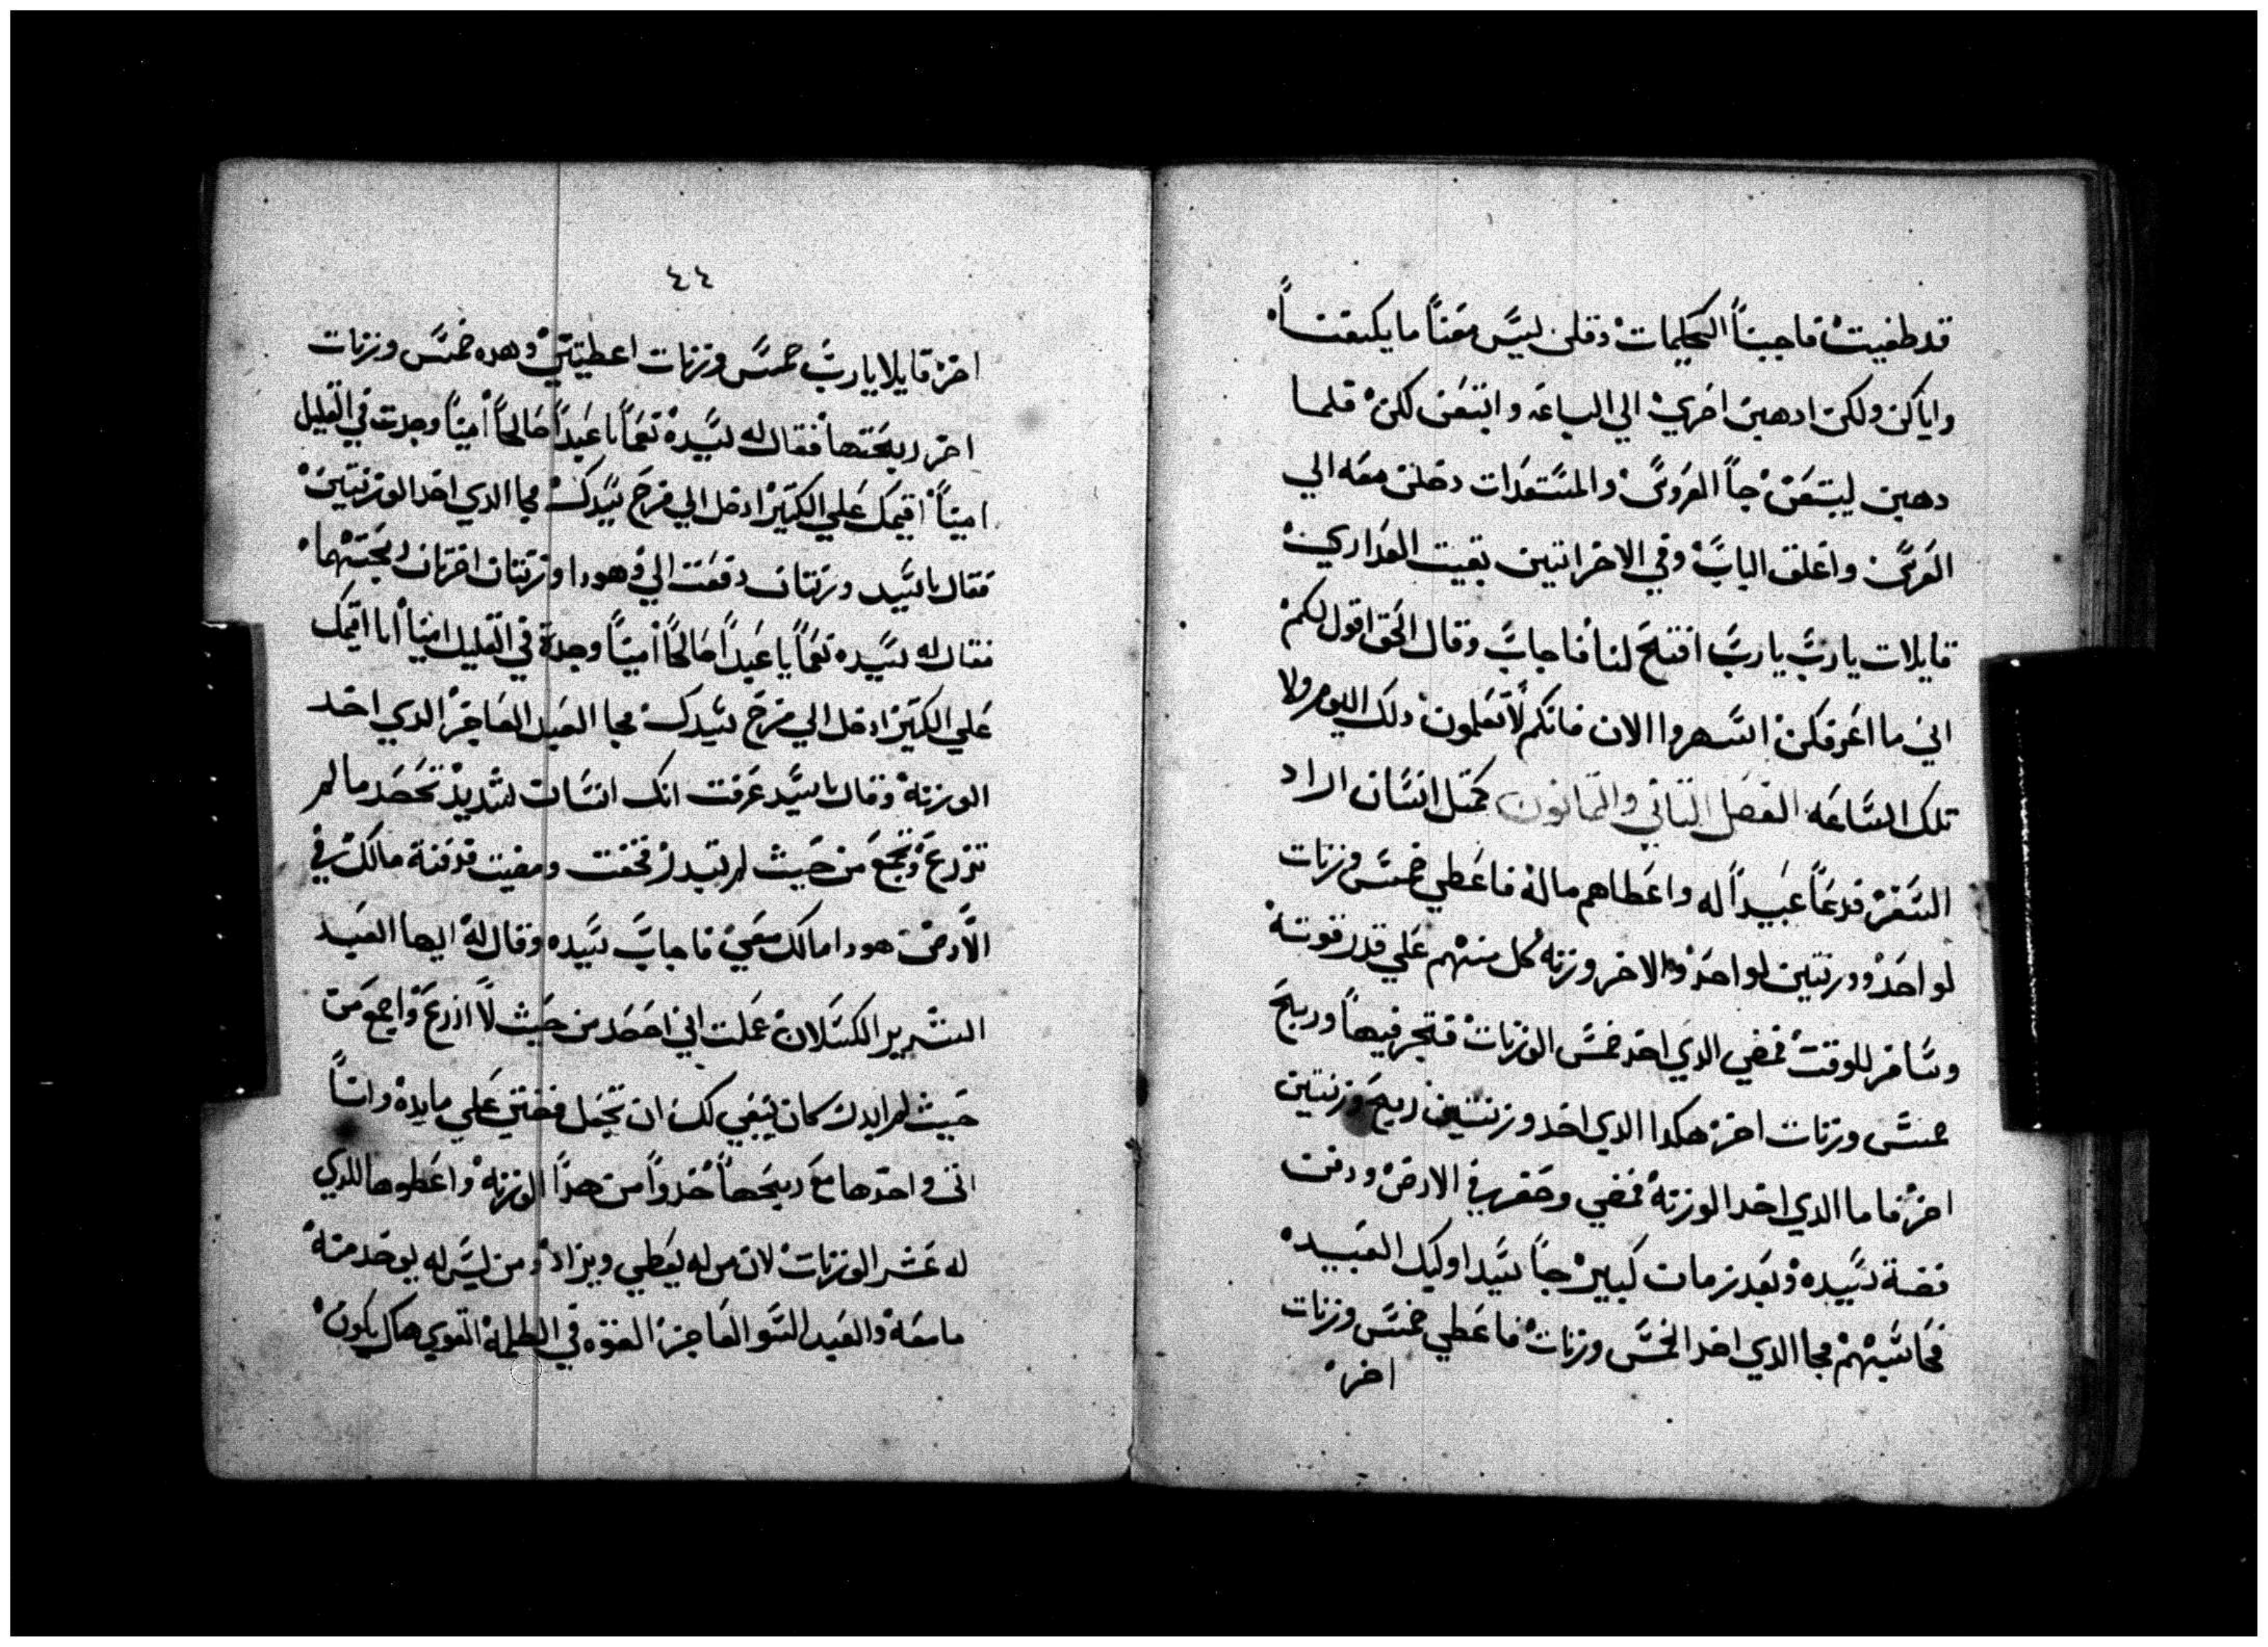 قد طفيت فاجبنا الحكيمات وقلن ليس معنا ما يكفينا
واياكن ولكن ادهبن احري الي الباعه وابتعن لكن فلما
دهبن ليبتعن جا العروس والمستعدات دخلن معه الي
العرس واغلق الباب وفي الاخر اتين بقيت العداري
قايلات يارب يارب افتح لنا فاجاب وقال الحق اقول لكم
اني ما اعرفكن اسهروا الان فانكم لا تعلمون دلك اليوم ولا
تلك الساعه الفصل التاني والتمانون كمتل انسان اراد
السفر فدعا عبيدا له واعطاهم ماله فاعطي خمس وزنات
لواحد ووزنتين لواحد والاخر وزنه كل منهم علي قدر قوته
وسافر للوقت فمضي الدي اخد خمس الوزنات فتجر فيها وربح
خمس وزنات اخر هكدا الدي اخد وزنتين ربح وزنتين
اخر فاما الدي اخد الوزنه فمضي وحفر في الارض ودفن
فضة سيده وبعد زمان كبير جا سيد اوليك العبيد
فحاسبهم فجا الدي اخد الخمس وزنات فاعطي خمس وزنات
اخر
٤٤
اخر قايلا يارب خمس وزنات اعطيتني وهده خمس وزنات
اخر ربحتها فقال له سيده نعما يا عبدا صالحا امينا وجدت في القليل
امينا اقيمك علي الكتير ادخل الي فرح سيدك فجا الدي اخد الوزنتين
فقال ياسيد وزنتان دفعت الي وهودا وزنتان اخرتان ربحتهما
فقال له سيده نعما يا عبدا صالحا امينا وجدة في القليل امينا انا اقيمك
علي الكتير ادخل الي فرح سيدك فجا العبد العاجز الدي اخد
الوزنة وقال ياسيد عرفت انك انسان شديد تحصد ما لم
تزرع وتجمع من حيث لم تبدر فخفت ومضيت فدفنة مالك في
الارض هودا مالك معي فاجاب سيده وقال له ايها العبد
الشرير الكسلان علمت اني احصد من حيث لا ازرع واجمع من
حيث لم ابدر كان ينبغي لك ان تجعل فضتي علي مايدة وانا
اتي واخدها مع ربحها خدوا من هدا الوزنة واعطوها للدي
له عشر الوزنات لان من له يعطي ويزاد ومن ليس له يوخد منه
ما معه والعبد السو العاجز القوه في الظلمة القوي هناك يكون